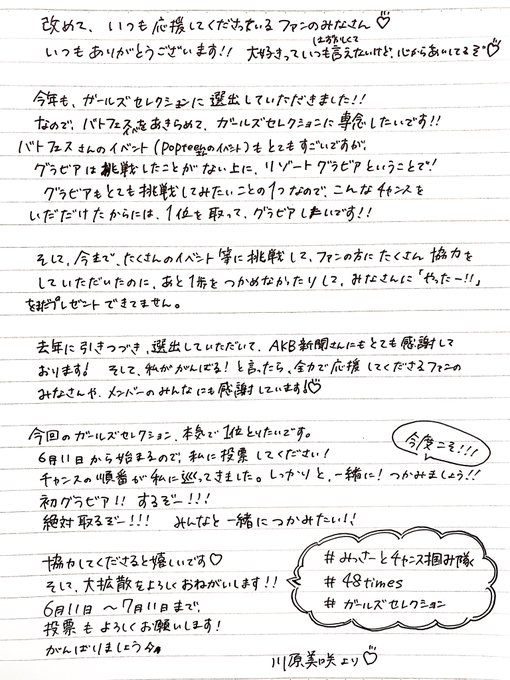 改めて、いつも応援してくださっている ファンのみなさん♡
いつもありがとうございます!! 大好きっていつも言えないけど、心からあいしてるぞ♡
はずかしくて
今年も、ガールズセレクションに選出していただきました!!
なので、バトフェスイベをあきらめて、ガールズセレクションに専念したいです!!
バトフェスさんのイベント(Popteenさんのイベント)もとてもすごいですが、
グラビアは挑戦したことがない上に、リゾートグラビアということで!
グラビアもとても挑戦してみたいことの1つなので、こんなチャンスを
いただけたからには、1位を取って、グラビアしたいです!!
そして、今まで、たくさんのイベント等に挑戦して、ファンの方にたくさん協力を
していただいたのに、あと1歩をつかめなかったりして、みなさんに「やったー!!」
をまだプレゼントできてません。
去年に引きつづき、選出していただいて、AKB新聞さんにもとても感謝して
おります! そして、私ががんばる!と言ったら、全力で応援してくださるファンの
みなさんや、メンバーのみんなにも感謝しています!♡
今回のガールズセレクション、本気で1位とりたいです。
今度こそ!!!
6月11日から始まるので、私に投票してください!
チャンスの順番が私に巡ってきました。しっかりと、一緒に!つかみましょう!!
初グラビア!! するぞー!!!
絶対取るぞー!!! みんなと一緒につかみたい!!
協力してくださると嬉しいです♡
そして、大拡散をよろしくおねがいします!!
6月11日 〜7月11日まで、
投票もよろしくお願いします!
がんばりましょう
#みっさーとチャンス掴み隊
#48times
#ガールズセレクション
川原美咲より♡